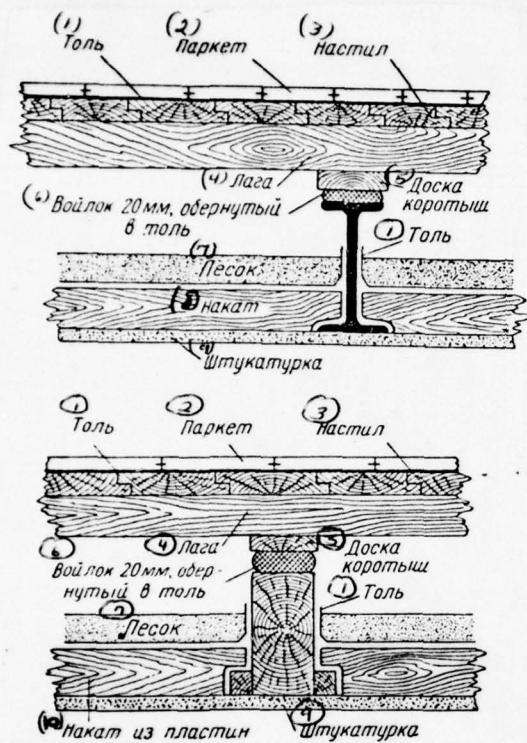 (1) Толь (2) Паркет (3) Настил
(4) Лага (5) Доска
коротыш
(6) Войлок 20мм, обернутый
в толь
(1) Толь
(7) Песок
(8) Накат
(9) Штукатурка
(1) Толь (2) Паркет (3) Настил
(4) Лага (5) Доска
коротыш
(6) Войлок 20мм, обер-
нутый в толь
(1) Толь
(7) Песок
(10) Накат из пластин (9) Штукатурка